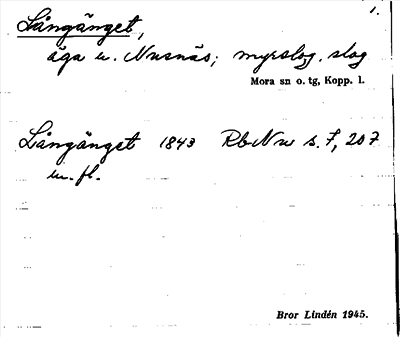 1.
Långänget,
äga u. Nusnäs; myrslogg, slog
Mora sn o. tg, Kopp. l.
Långänget 1843 RbNus s. 7, 207
m. fl.
Bror Lindén 1945.